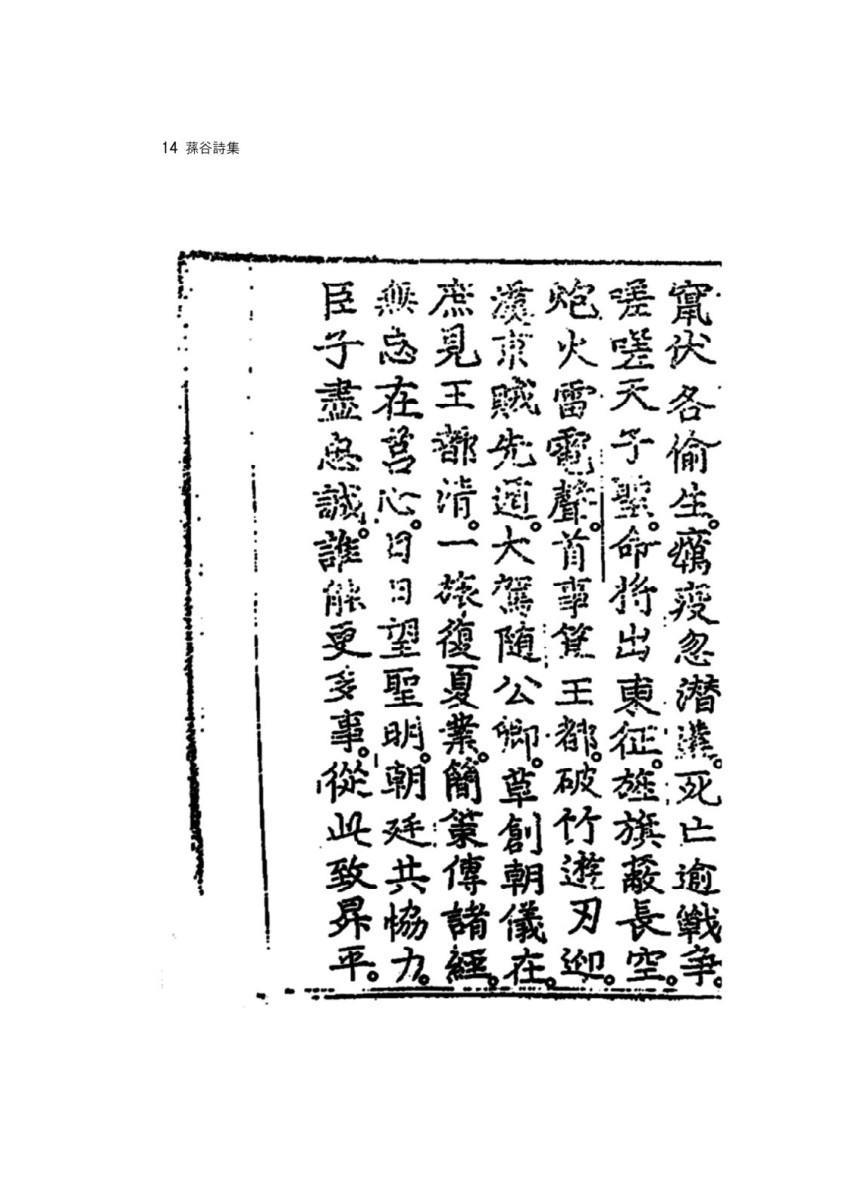 14 蓀谷詩集
竄伏各偷生。癘疫忽潛。死亡逾戰爭。
嗟嗟天子聖。命將出東征。旌旗蔽長空。
炮火雷電聲。首事箕王都。破竹遊刃迎。
漢東賊先遁。大駕隨公卿。草創朝儀在。
庶見王都清。一旅復夏業。簡策傳諸經。
無忘在莒心。日日望聖明。朝廷共恊力。
臣子盡忠誠。誰能更多事。從此致昇平。